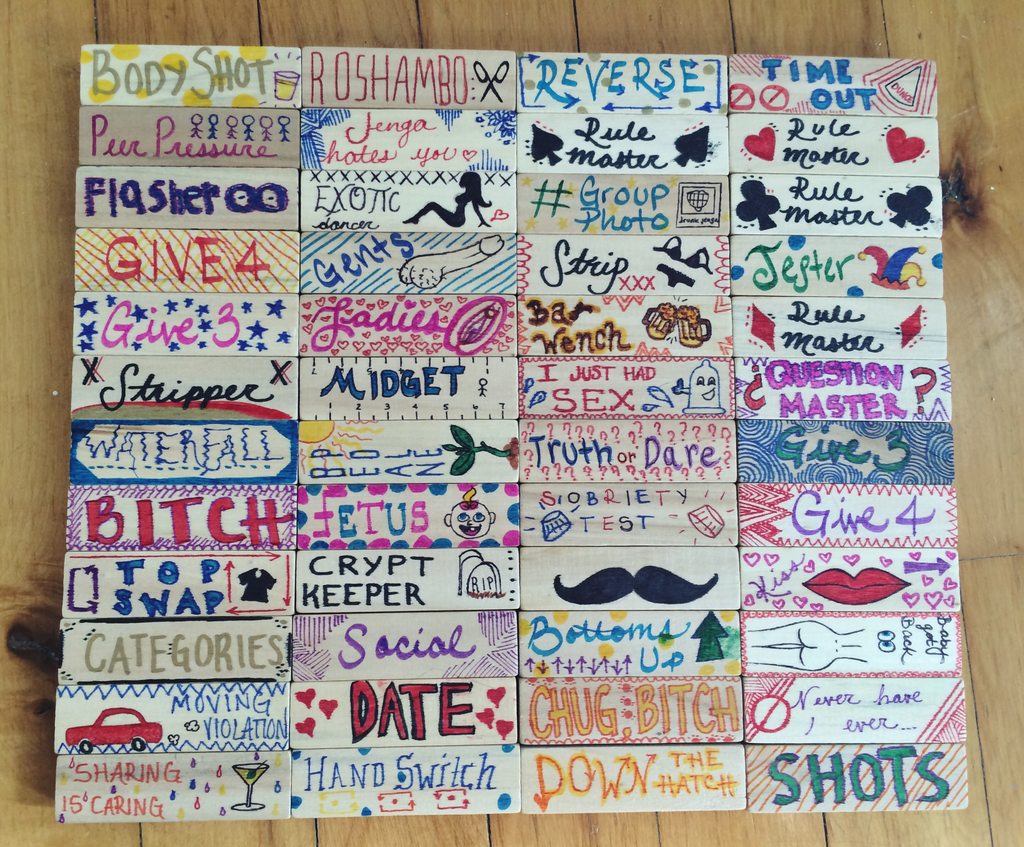 BODY SHOT
ROSHAMBO
REVERSE
TIME
OUT
DUNCE
Peer Pressure
Jenga
hates you
Rule
Master
Rule
Master
Flasher
EXOTIC
dancer
# Group
Photo
Rule
Master
GIVE 4
Gents
Strip
XXX
Jester
Give 3
Ladies
Bar
Wench
Rule
Master
X Stripper X
MIDGET
2 3 4 5 6 7
I JUST HAD
SEX
¿QUESTION
MASTER?
WATERFALL
Truth or Dare
Give 3
BITCH
FETUS
SIOBRIETY
TEST
Give 4
TOP
SWAP
CRYPT
KEEPER
RIP
Kiss
CATEGORIES
Social
Bottoms
Up
Baby
got
Back
MOVING
VIOLATION
DATE
CHUG, BITCH
Never have
I ever...
SHARING
IS CARING
HAND SWitch
DOWN THE
HATCH
SHOTS